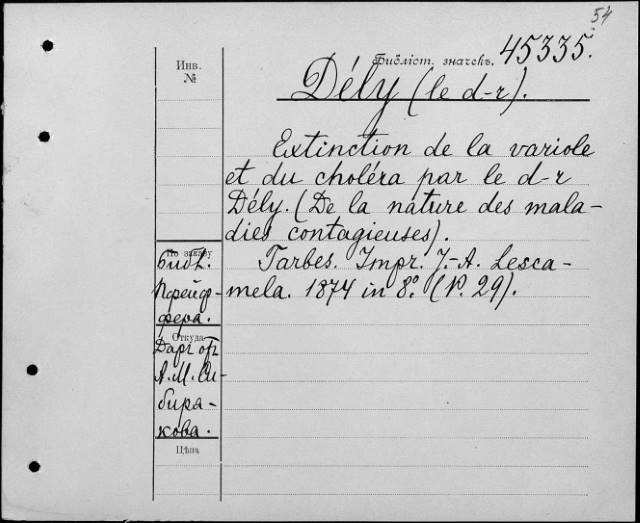 54
Инв.
№
Библіот. значекъ. 45335.
Dély (le d-r).
Extinction de la variole
et du choléra par le d-r
Dély. (De la nature des mala-
dies contagieuses).
Tarbes. Impr. J.-A. Lesca-
mela. 1874 in 8º. (P. 29).
По заказу
Библ.
Пфейф-
фера.
Откуда
Даръ отъ
А. М. Си-
биря-
кова.
Цѣна